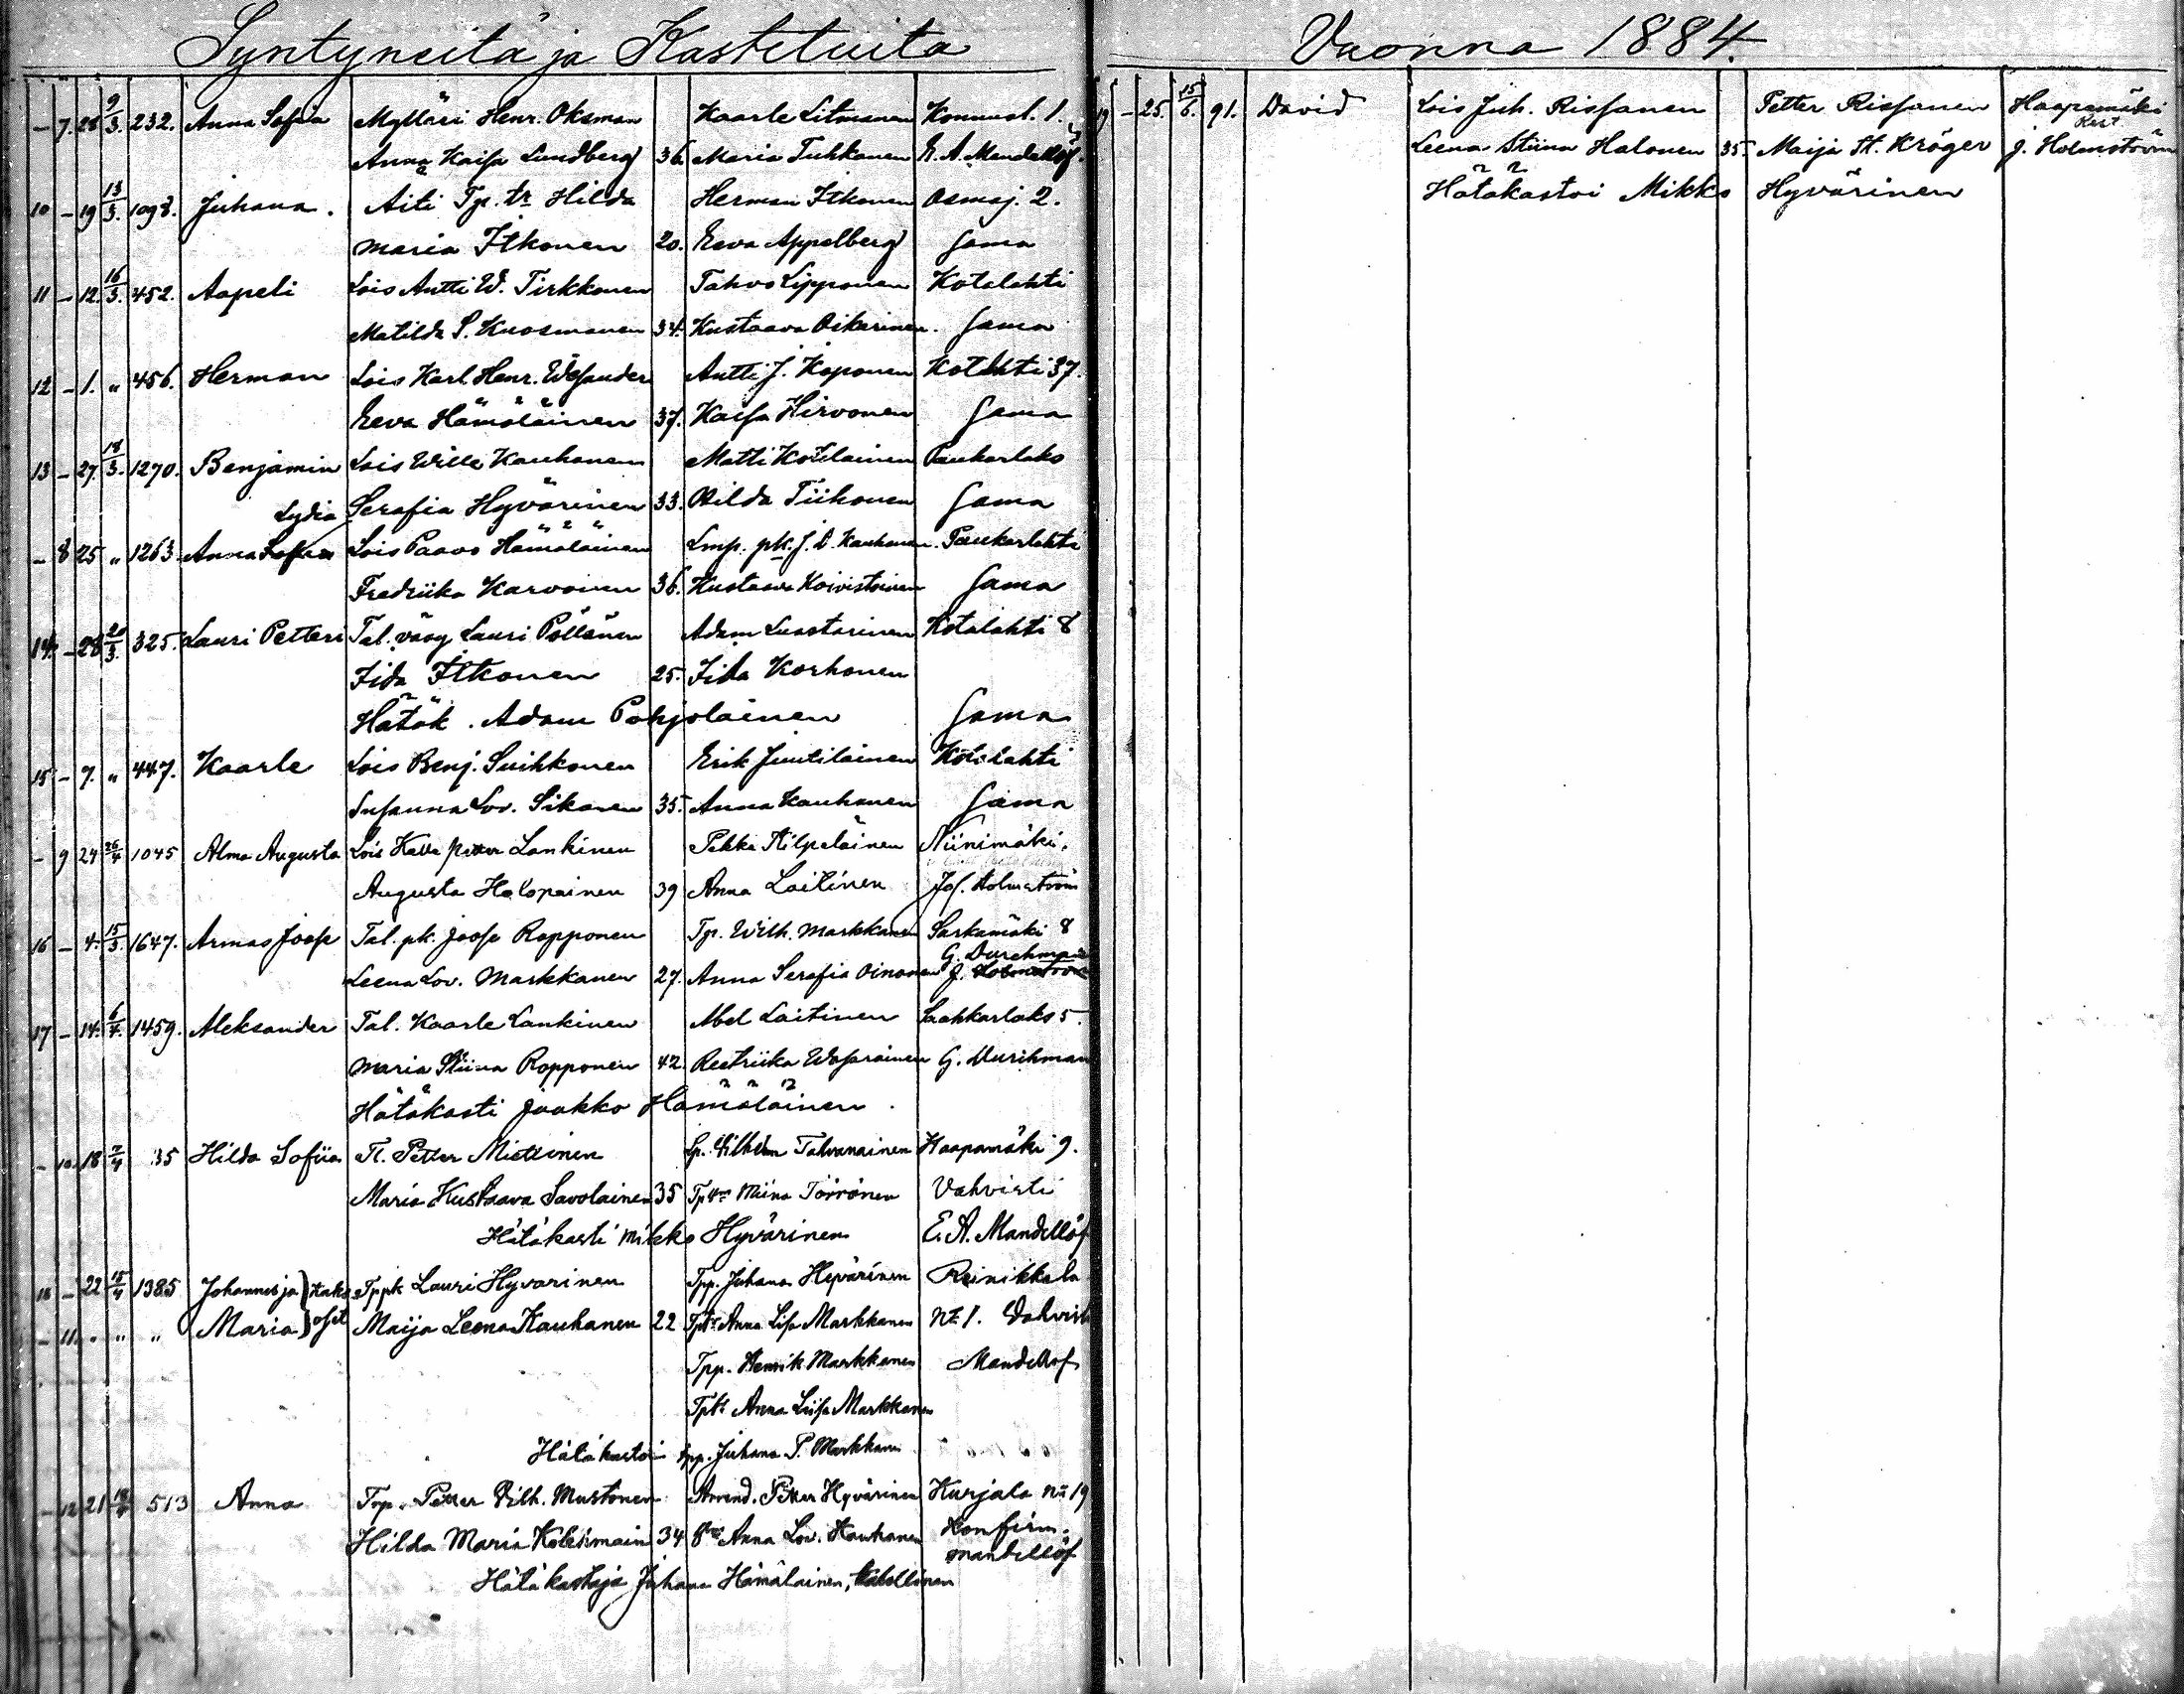 Syntyneitä ja Kastetuita
- 7. 28 9/3. 232. Anna Sofia Mylläri Henr. Oksman Kaarle Litmanen Konnusl. 1.
Anna Kaisa Lundberg 36. Maria Tuhkanen E. A. Mandellöf.
10 - 19 13/3. 1098. Juhana. Äiti Tp. tr Hilda Herman Itkonen Osmaj. 2.
Maria Itkonen 20. Eeva Appelberg Sama
11 - 12. 16/3. 452. Aapeli Lois Antti W. Tirkkonen Tahvo Lipponen Kotalahti
Matilda S. Kuosmanen 34. Kustaava Oikarinen. Sama
12 - 1. " 456. Herman Lois Karl Henr. Wesander Antti J. Koponen Kotalahti 37.
Eeva Hämäläinen 37. Kaisa Hirvonen Sama
13 - 27. 18/3. 1270. Benjamin Lois Wille Kauhanen Matti Kotilainen Paukarlaks
Serafia Hyvärinen 33. Hilda Tiihonen Sama
Lydia
- 8 25 " 1263. Anna Lois Paavo Hämäläinen Lmp. pk. J. D. Kauhanen. Paukarlahti
Fredriika Karvonen 36. Kustaava Koivistoinen Sama
14. - 28 20/3. 325. Lauri Petteri Tal. vävy Lauri Pöllänen Adam Luostarinen Kotalahti 8
Iida Itkonen 25. Iida Korhonen
Hätäk. Adam Pohjolainen Sama
15 - 7. " 447. Kaarle Lois Benj. Suihkonen Erik Juutilainen Kotalahti
Susanna Lov. Sikanen 35. Anna Kauhanen Sama
- 9 24 26/4 1045 Alma Augusta Lois Kalle Petter Lankinen Pekka Kilpeläinen Niinimäki.
Augusta Halopainen 39 Anna Laitinen Jos. Holmström
16 - 4. 15/3. 1647. Armas Joose Tal. pk. Joose Ropponen Tp. Wilh. Markkanen Sarkamäki 8
G. Durchman
Leena Lov. Markkanen 27. Anna Serafia Oinonen J. Holmström
17 - 14. 6/4. 1459. Aleksander Tal. Kaarle Lankinen Abel Laitinen Saahkarlaks 5.
Maria Stiina Ropponen 42. Reetriika Wesarainen G. Durchman
Hätäkasti Jaakko Hämäläinen.
- 10. 18 7/4 35 Hilda Sofiia Tl. Petter Miettinen Lp. Vilhelm Talvanainen Haapamäki 9.
Maria Kustaava Savolainen 35 Tptr Miina Törrönen Vahvisti
Hätäkasti Mikko Hyvärinen E. A. Mandellöf
18 - 22 15/4 1385 Johannes ja Kaks Tppk Lauri Hyvärinen Tpp. Juhana Hyvärinen Reinikkala
- 11. " " " Maria oset Maija Leena Kauhanen 22 Tptr Anna Lisa Markkanen No 1. Vahvisti
Tpp. Henrik Markkanen Mandellöf
Tptr Anna Liisa Markkanen
Hätäkastoi tpp. Juhana P. Markkanen
- 12 21 513 Anna Tpp. Petter Vilh. Mustonen Arrend. Petter Hyvärinen Kurjala No 19
Hilda Maria Kolehmain 34 Anna Lov. Kauhanen Konfirm.
Mandellöf
Hätäkastaja Juhana Hämäläinen, itsellinen
Vuonna 1884.
19 - 25. 15/6. 91. David Lois Juh. Rissanen Petter Rissanen Haapamäki
Leena Stiina Halonen 35. Maija St. Kröger J. Holmström
Hätäkastoi Mikko Hyvärinen